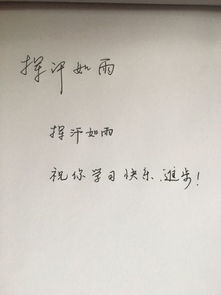 挥汗如雨
挥汗如雨
祝你学习快乐、进步!